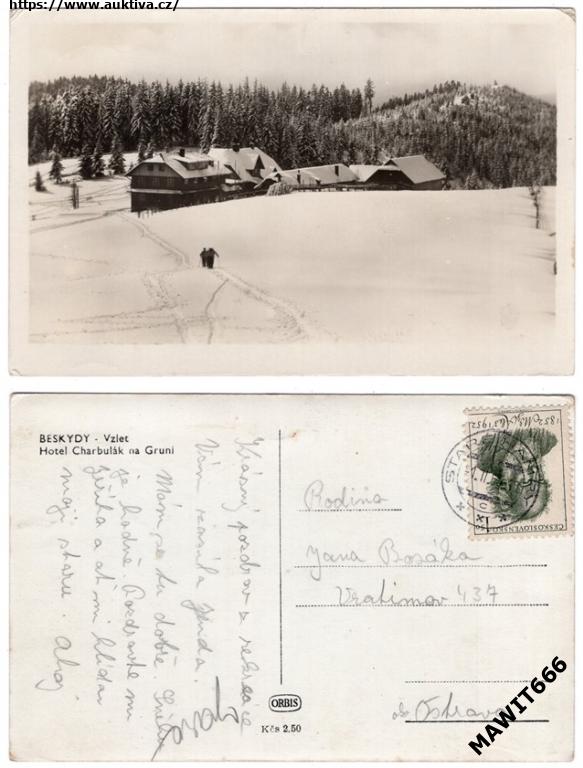 https://www.auktiva.cz/
BESKYDY - Vzlet
Hotel Charbulák na Gruni
Krásný pozdrav z rekreace
Vám zasílá Jenda.
Mám se tu dobře. Sněhu
je hodně. Pozdravte mi
a ať mi hlídá
moji starou. Ahoj
Rodina
Jana Bosáka
Vratimov 437
Ostrava
ORBIS
Kčs 2,50
1852 1952
ČESKOSLOVENSKO
1,50
MAWIT666